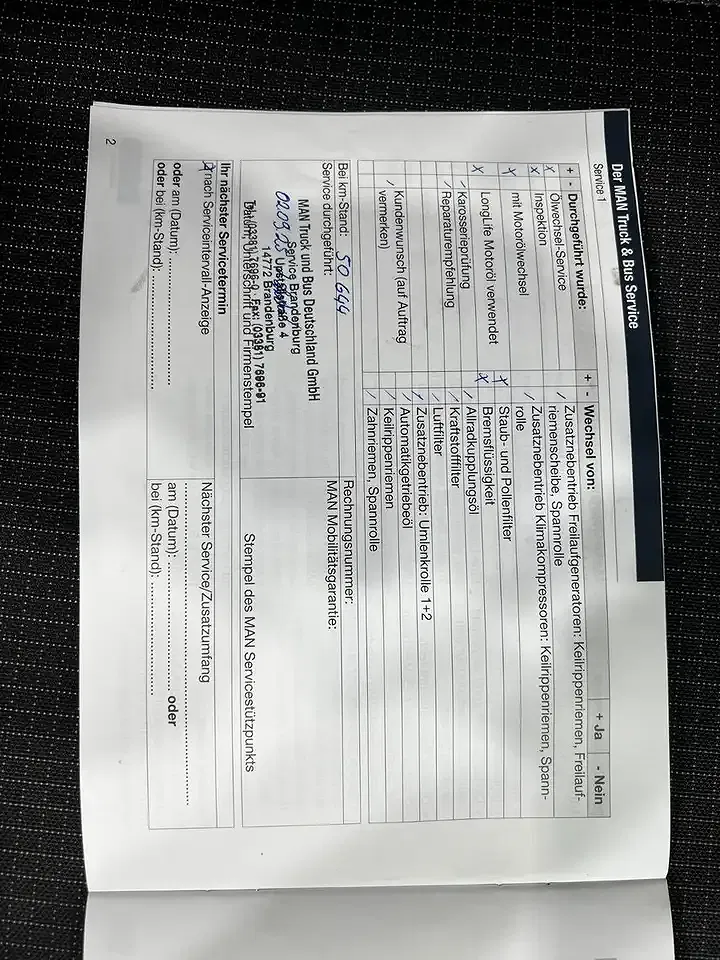 Der MAN Truck & Bus Service
Service 1
+ Ja - Nein
+ - Durchgeführt wurde:
x Ölwechsel-Service
x Inspektion
x mit Motorölwechsel
x LongLife Motoröl verwendet
/ Karosserieprüfung
/ Reparaturempfehlung
/ Kundenwunsch (auf Auftrag
vermerken)
+ - Wechsel von:
/ Zusatznebentrieb Freilaufgeneratoren: Keilrippenriemen, Freilauf-
riemenscheibe, Spannrolle
/ Zusatznebentrieb Klimakompressoren: Keilrippenriemen, Spann-
rolle
x Staub- und Pollenfilter
x Bremsflüssigkeit
/ Allradkupplungsöl
/ Kraftstofffilter
/ Luftfilter
/ Zusatznebentrieb: Umlenkrolle 1+2
/ Automatikgetriebeöl
/ Keilrippenriemen
/ Zahnriemen, Spannrolle
Bei km-Stand: 50 644
Service durchgeführt:
Rechnungsnummer:
MAN Mobilitätsgarantie:
MAN Truck und Bus Deutschland GmbH
Service Brandenburg
02.09.
4
14772 Brandenburg
Tel. (03381) 7696-0, Fax: (03381) 7696-91
Datum, Unterschrift und Firmenstempel
Stempel des MAN Servicestützpunkts
Ihr nächster Servicetermin
x nach Serviceintervall-Anzeige
oder am (Datum):
oder bei (km-Stand):
Nächster Service/Zusatzumfang
am (Datum): oder
bei (km-Stand):
2